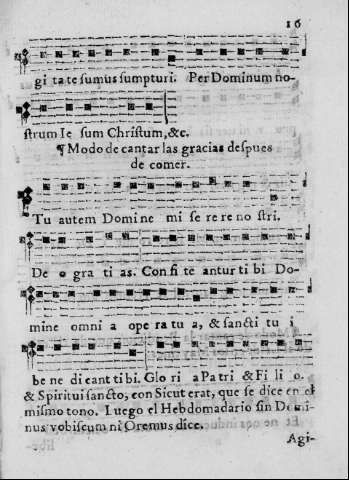 16
gi ta te sumus sumpturi. Per Dominum no-
strum Ie sum Christum, &c.
¶ Modo de cantar las gracias despues
de comer.
Tu autem Domine mi se re re no stri.
De o gra ti as. Con fi te antur ti bi Do-
mine omni a ope ra tu a, & sancti tu i
be ne dicant ti bi. Glo ri a Patri & Fi li o.
& Spiritui sancto, con Sicut erat, que se dice en el
mismo tono. Luego el Hebdomadario sin Domi-
nus vobiscum ni Oremus dice.
Agi-